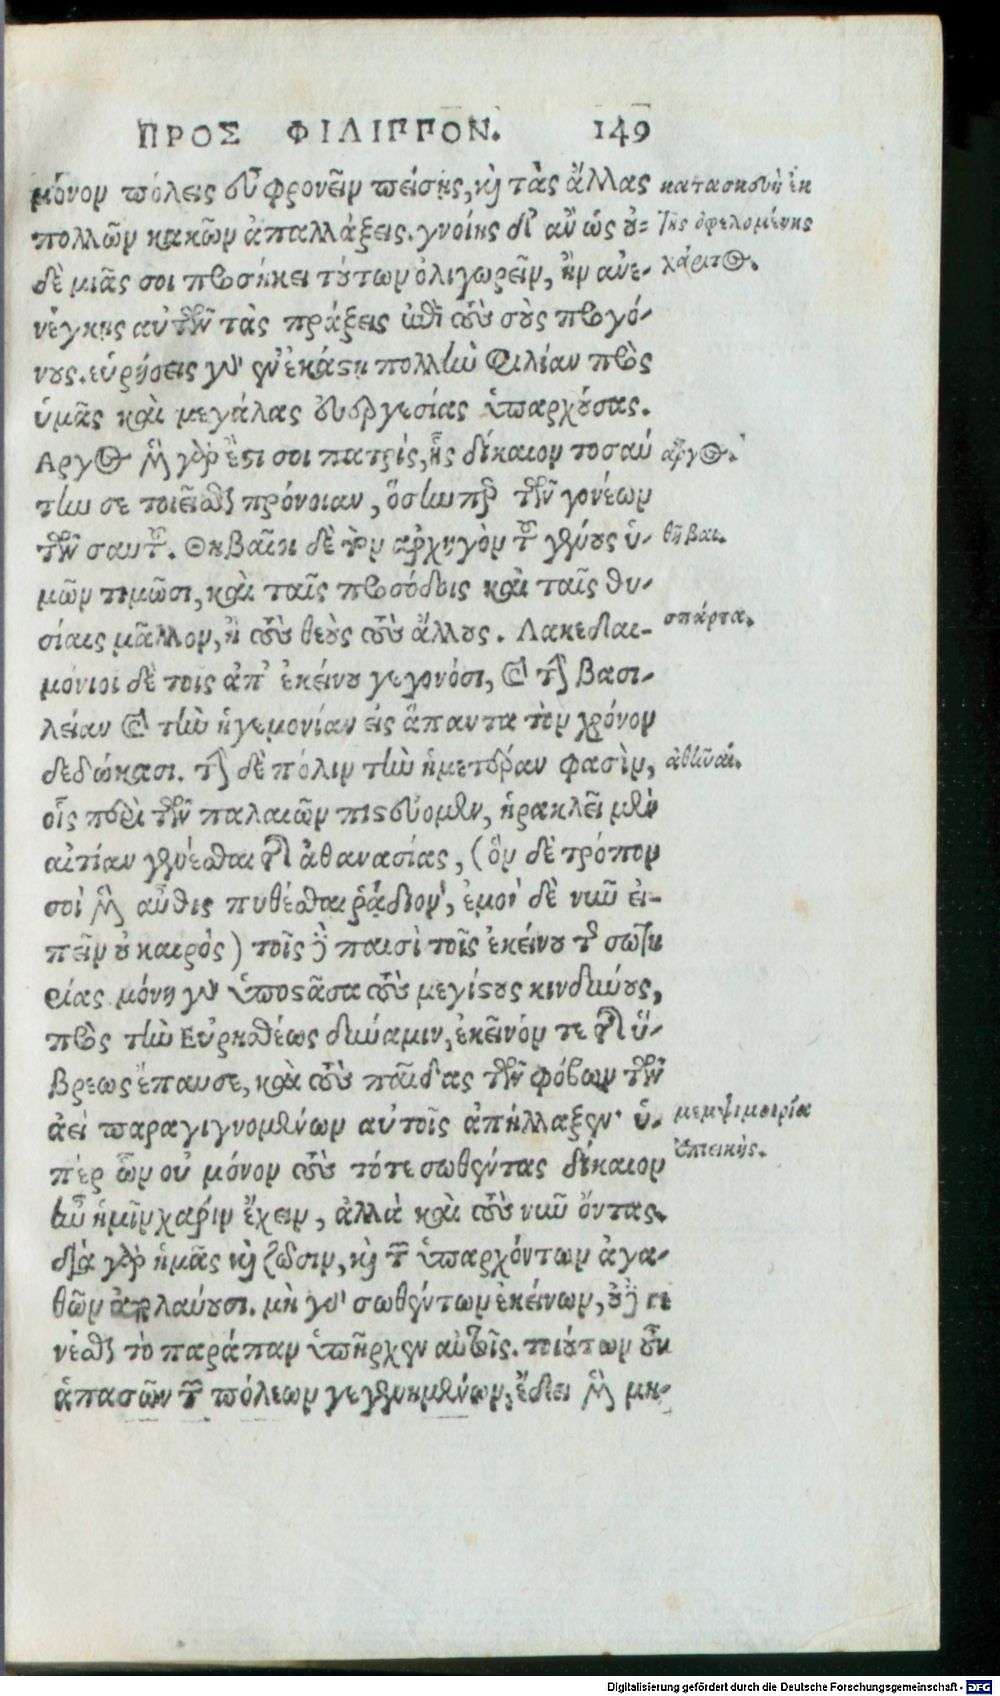 ΠΡΟΣ ΦΙΛΙΠΠΟΝ. 149
μόνον πόλεις εὖ φρονεῖν πείσῃς, καὶ τὰς ἄλλας
πολλῶν κακῶν ἀπαλλάξεις. γνοίης δ' ἂν ὡς οὐ-
δὲ μιᾶς σοι προσήκει τούτων ὀλιγωρεῖν, ἢν ἀνε-
νέγκῃς αὐτῶν τὰς πράξεις ἐπὶ τοὺς σοὺς προγό-
νους. εὑρήσεις γὰρ ἐν ἑκάστῃ πολλὴν φιλίαν πρὸς
ὑμᾶς καὶ μεγάλας εὐεργεσίας ὑπαρχούσας.
Αργος μὲν γάρ ἐστι σοι πατρὶς, ἧς δίκαιον τοσαύ
την σε ποιεῖσθαι πρόνοιαν, ὅσην περ τῶν γονέων
τῶν σαυτοῦ. Θηβαῖοι δὲ τὸν ἀρχηγὸν τοῦ γένους ὑ-
μῶν τιμῶσι, καὶ ταῖς προσόδοις καὶ ταῖς θυ-
σίαις μᾶλλον, ἢ τοὺς θεοὺς τοὺς ἄλλους. Λακεδαι-
μόνιοι δὲ τοις ἀπ' ἐκείνου γεγονόσι, καὶ τὴν βασι-
λείαν καὶ τὴν ἡγεμονίαν εἰς ἅπαντα τὸν χρόνον
δεδώκασι. τὴν δὲ πόλιν τὴν ἡμετέραν φασὶν,
οἷς περὶ τῶν παλαιῶν πιστεύομεν, ἡρακλεῖ μὲν
αἰτίαν γενέσθαι τῆς ἀθανασίας, (ὃν δὲ τρόπον
σοὶ μὲν αὖθις πυθέσθαι ῥᾴδιον, ἐμοὶ δὲ νῦν εἰ-
πεῖν οὐ καιρὸς) τοῖς δὲ παισὶ τοῖς ἐκείνου τῆς σωτη
ρίας. μόνη γὰρ ὑποστᾶσα τοὺς μεγίστους κινδύνους,
πρὸς τὴν Εὐρυσθέως δύναμιν, ἐκεῖνόν τε τῆς ὕ-
βρεως ἔπαυσε, καὶ τοὺς παῖδας τῶν φόβων τῶν
ἀεὶ παραγιγνομένων αὐτοῖς ἀπήλλαξεν· ὑ-
πὲρ ὧν οὐ μόνον τοὺς τότε σωθέντας δίκαιον
ἦν ἡμῖν χάριν ἔχειν, ἀλλὰ καὶ τοὺς νῦν ὄντας.
διὰ γὰρ ἡμᾶς καὶ ζῶσιν, καὶ τῶν ὑπαρχόντων ἀγα-
θῶν ἀπολαύουσι. μὴ γὰρ σωθέντων ἐκείνων, οὐδὲ γε
νέσθαι τὸ παράπαν ὑπῆρχεν αὐτοῖς. τοιούτων οὖν
ἁπασῶν τῶν πόλεων γεγενημένων, ἔδει μὲν μη-
κατασκευὴ ἐκ
τῆς ὀφελομένης
χάριτος.
αργος.
θῆβαι.
σπάρτα.
ἀθῆναι.
μεμψιμοιρία
ἐπιεικής.
Digitalisierung gefördert durch die Deutsche Forschungsgemeinschaft - DFG